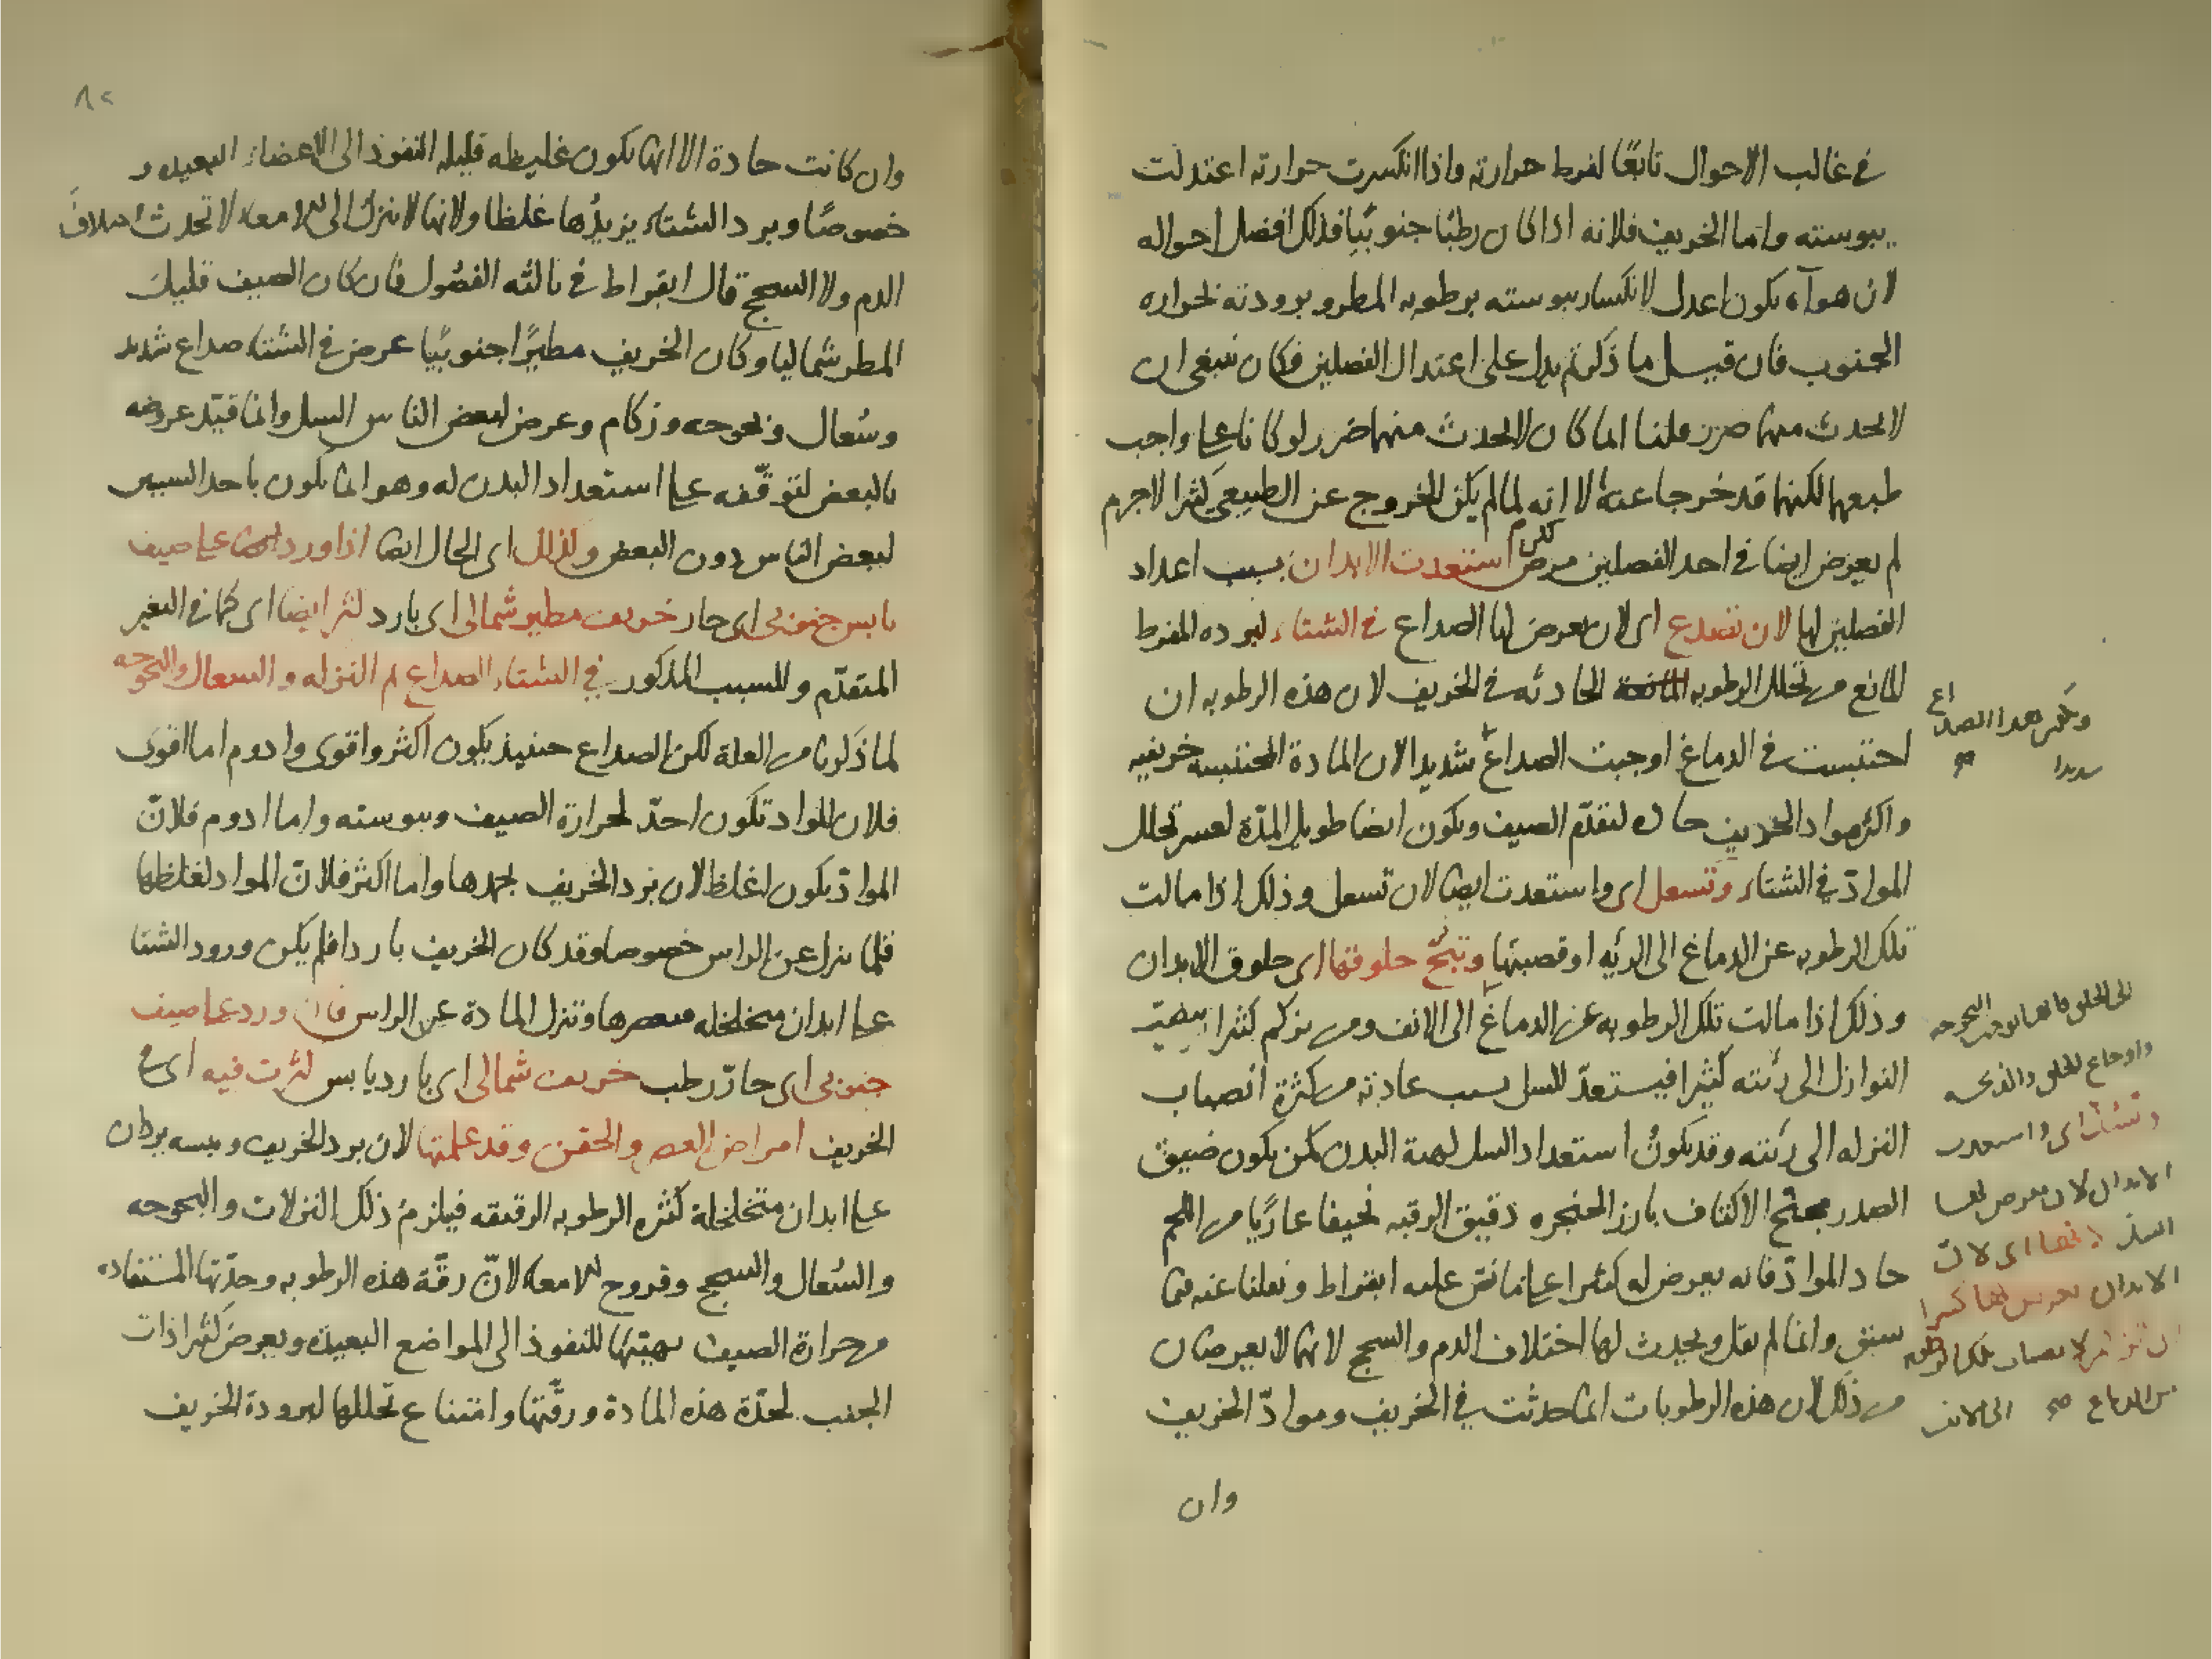 في غالب الاحوال تابعًا لفرط حرارته واذا انكسرت حرارته اعتدلت
يبوسته واما الخريف فلانه اذا كان رطبًا جنوبيًا فذلك افضل احواله
لان هوآه يكون اعدل لانكسار يبوسته برطوبه المطر وبرودته بحراره
الجنوب فان قيل ما ذكرتم يدل على اعتدال الفصلين فكان ينبغي ان
لا يحدث منهما ضرر قلنا انما كان لا يحدث منهما ضرر لو كانا على واجب
طبعهما لكنهما قد خرجا عنه الا انه لما لم يكن الخروج عن الطبيعي كثيرا لاجرم
لم يعرض ايضا في احد الفصلين مرض لكن استعدت الابدان بسبب اعداد
الفصلين لها لان تصدع اى لان يعرض لها الصداع في الشتاء لبرده المفرط
المانع من تحلل الرطوبه الحادثه في الخريف لان هذه الرطوبه ان
احتبست في الدماغ اوجبت الصداع شديدا لان المادة المحتبسه خريفيه
واكثر مواد الخريف حاده لتقدم الصيف ويكون ايضا طويل المدّة لعسر تحلل
الموادّ في الشتاء وتسعل اى واستعدت ايضا لان تسعل وذلك اذا مالت
تلك الرطوبه عن الدماغ الى الرئه او قصبتها وتبحّ حلوقها اى حلوق الابدان
وذلك اذا مالت تلك الرطوبه عن الدماغ الى الانف ومن يزكم كثيرا
النوازل الى رئته كثيرا فيستعدّ للسل بسبب عادته من كثرة انصباب
النزله الى رئته وقد يكون استعداد السل لهيئة البدن كمن يكون ضيق
الصدر مجنح الاكتاف بارز الحنجره دقيق الرقبه نحيفا عاريا من اللحم
حاد الموادّ فانه يعرض له كثيرا على ما نص عليه ابقراط ونقلنا عنه فيما
سبق وانما لم يقل ويحدث لها اختلاف الدم والسحج لانهما لا يعرضان
من ذلك لان هذه الرطوبات انما حدثت في الخريف وموادّ الخريف
وان
الى الحلق
واوجاع الحلق
الابدان لان يعرض لها
السل
من الدماغ صح الى الانف
٨٢
وان كانت حادة الا انها يكون غليظه قليله النفوذ الى الاعضاء البعيده
خصوصًا وبرد الشتاء يزيدها غلظا ولانها لا تنزل الى الامعاء لا تحدث اختلاف
الدم ولا السحج قال ابقراط في ثالثه الفصول فان كان الصيف قليل
المطر شماليا وكان الخريف مطيرًا جنوبيًا عرض في الشتاء صداع شديد
وسعال وبحوحه وزكام وعرض لبعض الناس السل وانما قيّد عروضه
بالبعض لتوقّفه على استعداد البدن له وهو انما يكون باحد السببين
لبعض الناس دون البعض وكذلك اى الحال ايضا اذا ورد على صيف
يابس جنوبى اى حار خريف مطير شمالى اى بارد كثر ايضا اى كما في التغير
المتقدّم وللسبب المذكور في الشتاء الصداع ثم النزله والسعال والبحوحه
لما ذكرنا من العلة لكن الصداع حينئذ يكون اكثر واقوى وادوم اما اقوى
فلان المواد تكون احدّ لحرارة الصيف ويبوسته واما ادوم فلانّ
الموادّ يكون اغلظ لان برد الخريف يجمدها واما اكثر فلانّ المواد لغلظها
قلما ينزل عن الراس خصوصا وقد كان الخريف باردا فلم يكن ورود الشتا
على ابدان متخلخله فيعصرها وتنزل المادة عن الراس فان ورد على صيف
جنوبى اى حارّ رطب خريف شمالى اى بارد يابس كثرت فيه اى في
الخريف امراض العصر والحقن وقد علمتها لان برد الخريف ويبسه يردان
على ابدان متخلخلة كثيره الرطوبه الرقيقه فيلزم ذلك النزلات والبحوحه
والسعال والسحج وقروح الامعاء لانّ رقّة هذه الرطوبه وحدّتها المستفاده
من حرارة الصيف يهيّئها للنفوذ الى المواضع البعيده ويعرض كثيرا ذات
الجنب لحدّة هذه المادة ورقّتها وامتناع تحللها لبرودة الخريف